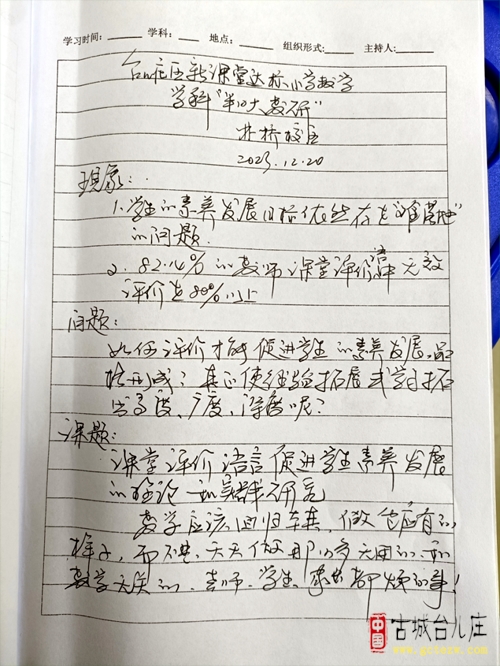 学习时间：______ 学科：____ 地点：______ 组织形式：______ 主持人：______
台儿庄区新课堂达标小学数学
学科“半日大教研”
林桥校区
2023.12.20
现象：
1.学生的素养发展目标依然存在“难落地”
的问题.
2.82.14%的教师课堂评价语中无效
评价在80%以上
问题：
如何评价才能促进学生的素养发展、品
格形成？真正使经验拓展或学习拓
出高度、广度、深度呢？
课题：
课堂评价语言促进学生素养发展
的理论和实践研究
教学应该回归本真，做它应有的
样子，而不是天天做那么多无用的、和
教学无关的、老师、学生、家长都烦的事！
中国 古城台儿庄